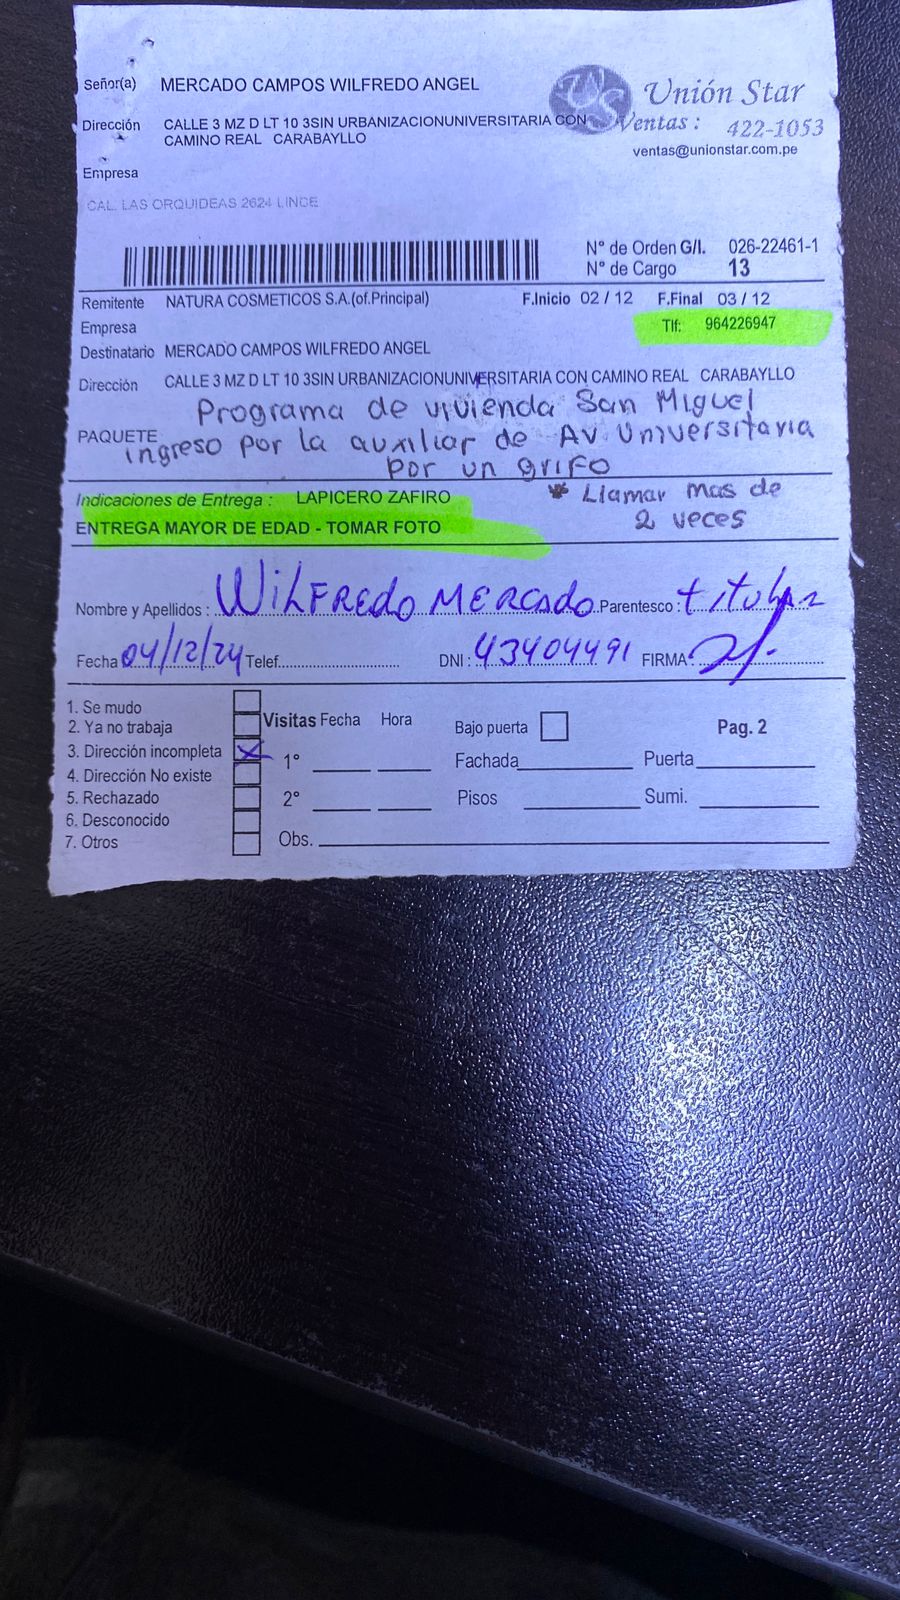 Señor(a) MERCADO CAMPOS WILFREDO ANGEL
Unión Star
Dirección CALLE 3 MZ D LT 10 3SIN URBANIZACIONUNIVERSITARIA CON
CAMINO REAL CARABAYLLO
Ventas : 422-1053
ventas@unionstar.com.pe
Empresa
CAL. LAS ORQUIDEAS 2624 LINCE
N° de Orden G/I. 026-22461-1
N° de Cargo 13
Remitente NATURA COSMETICOS S.A.(of.Principal) F.Inicio 02 / 12 F.Final 03 / 12
Empresa Tlf: 964226947
Destinatario MERCADO CAMPOS WILFREDO ANGEL
Dirección CALLE 3 MZ D LT 10 3SIN URBANIZACIONUNIVERSITARIA CON CAMINO REAL CARABAYLLO
Programa de vivienda San Miguel
PAQUETE ingreso por la auxiliar de Av Universitaria
por un grifo
Indicaciones de Entrega : LAPICERO ZAFIRO * Llamar mas de
ENTREGA MAYOR DE EDAD - TOMAR FOTO 2 veces
Nombre y Apellidos : WiLFREDO MERCADO Parentesco : titular
Fecha 04/12/24 Telef. DNI : 43404491 FIRMA:
1. Se mudo
2. Ya no trabaja Visitas Fecha Hora Bajo puerta Pag. 2
3. Dirección incompleta X 1° Fachada Puerta
4. Dirección No existe
5. Rechazado 2° Pisos Sumi.
6. Desconocido
7. Otros Obs.